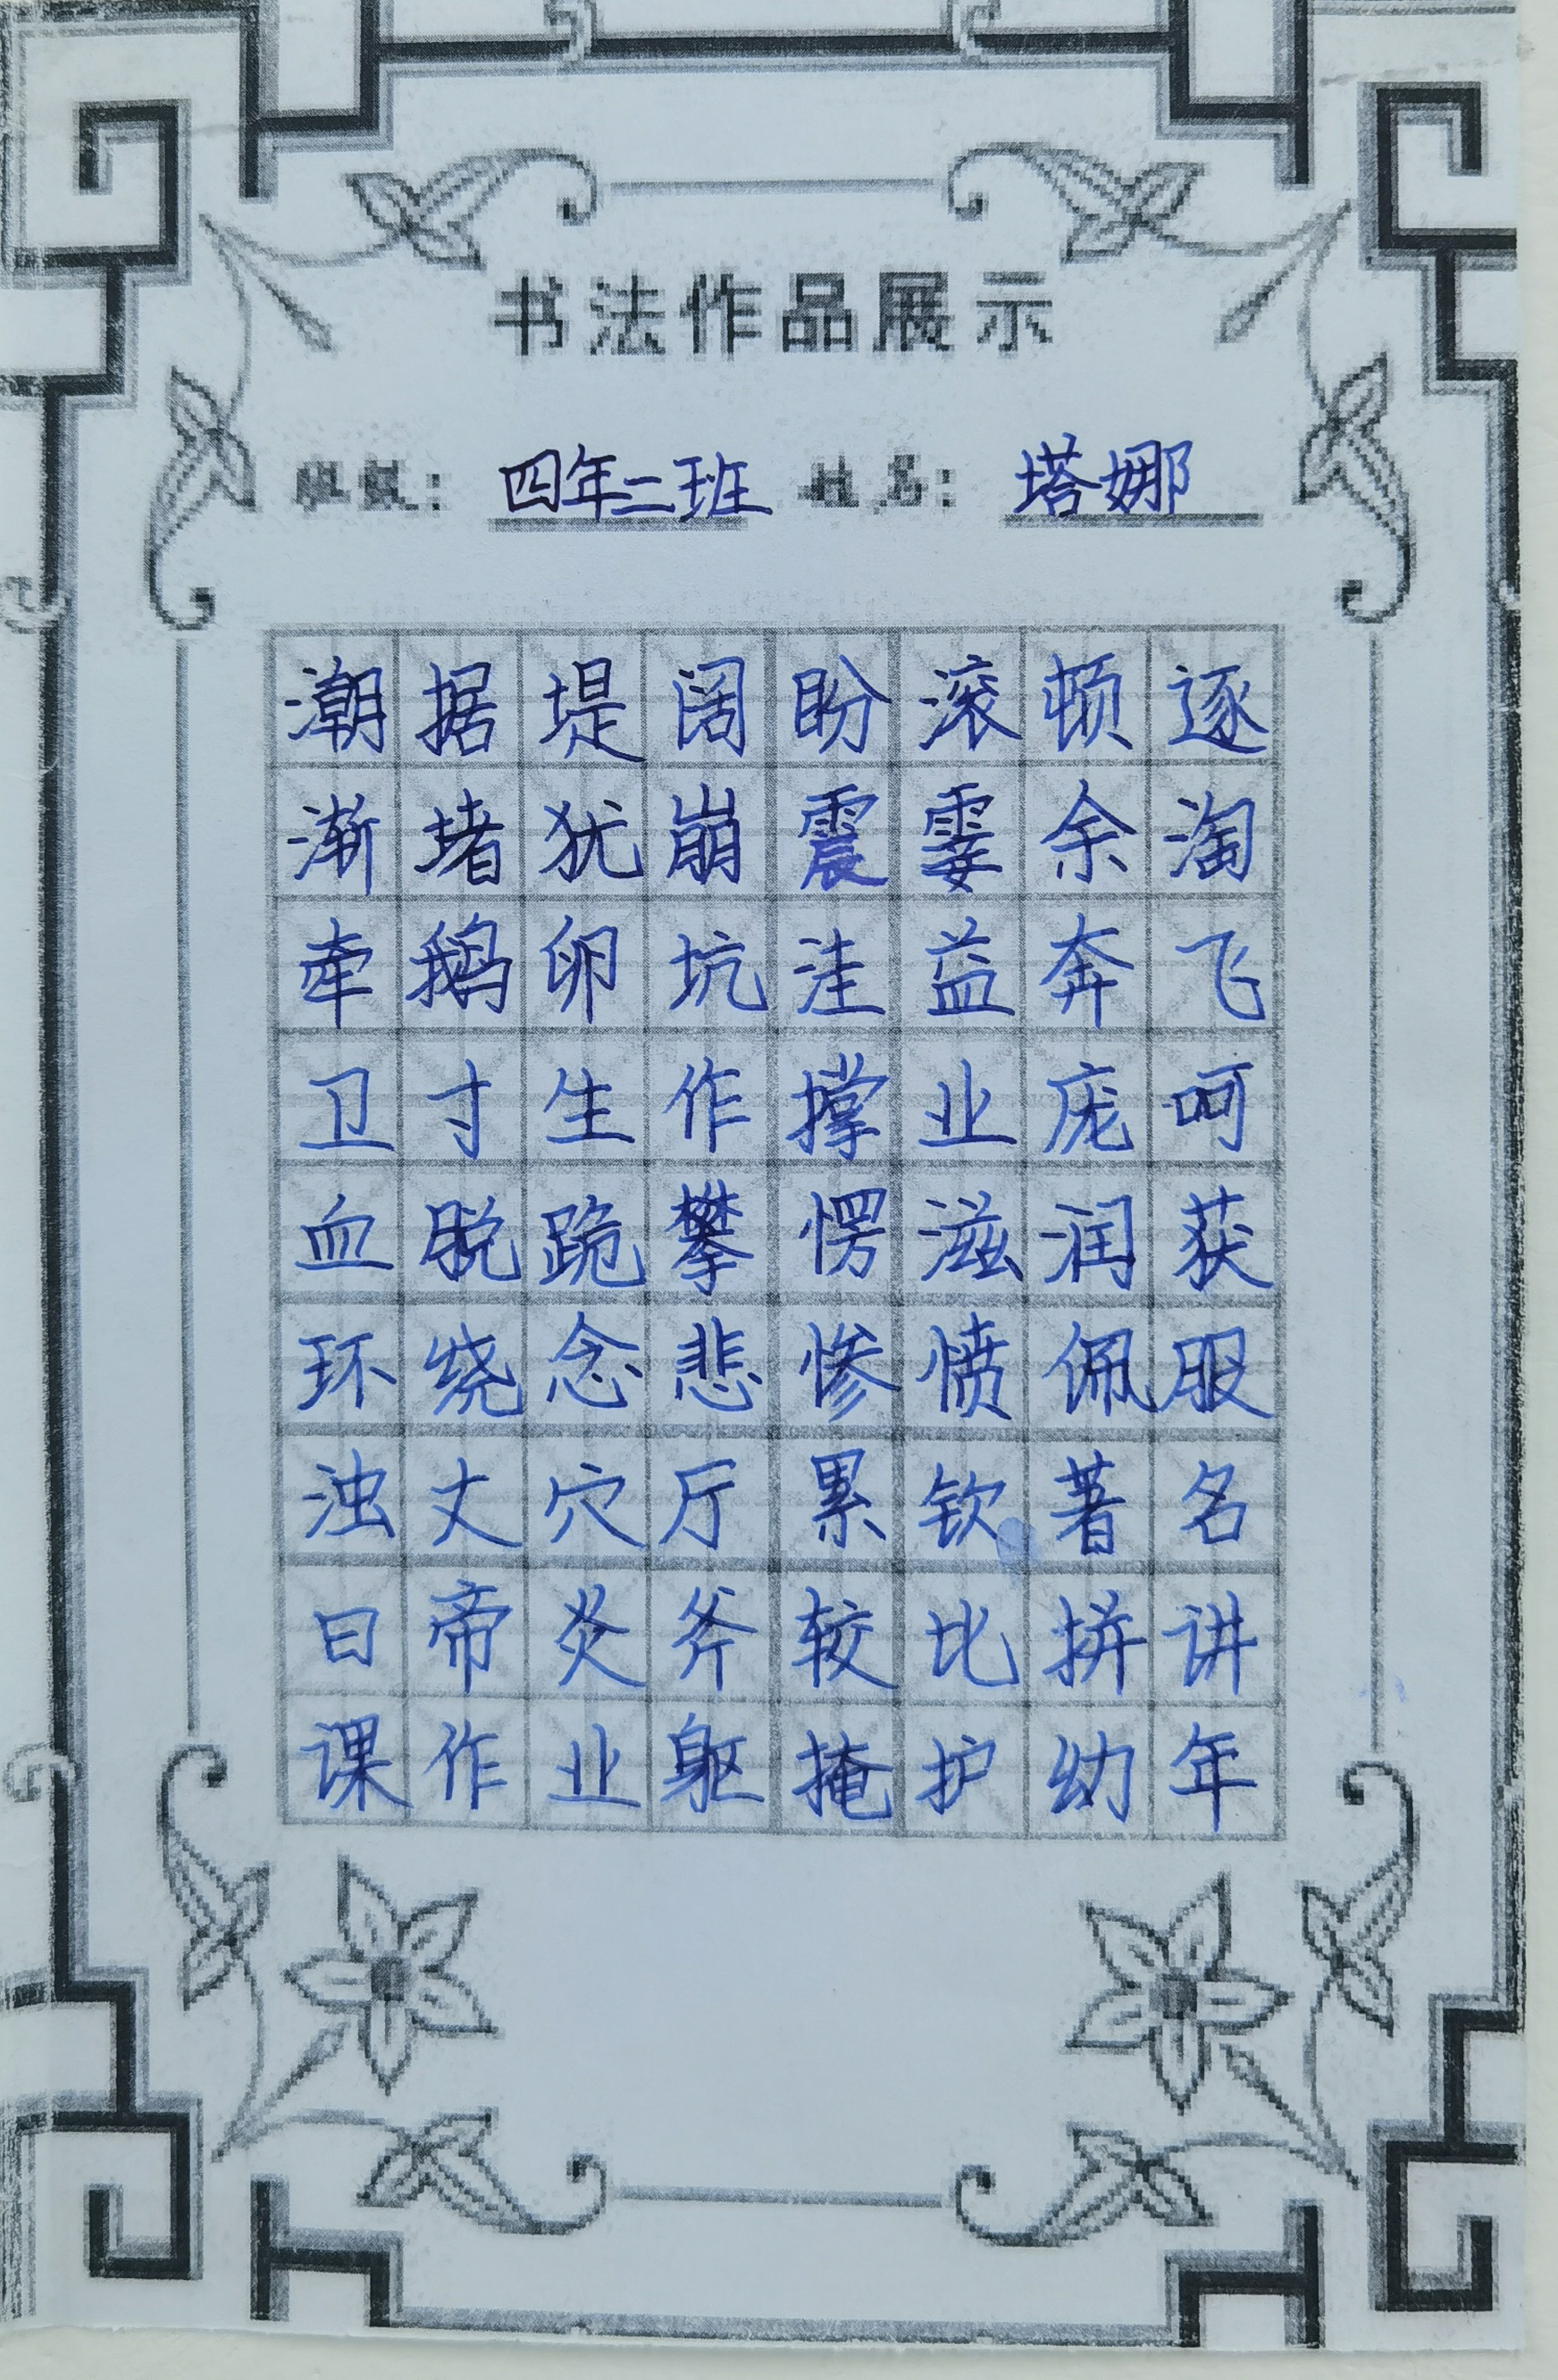 书法作品展示
班级：四年二班 姓名：塔娜
潮据堤阔盼滚顿逐
渐堵犹崩震霎余淘
牵鹅卵坑洼益奔飞
卫寸生作撑业庞呵
血脱跪攀愕滋润获
环绕念悲惨愤佩服
浊丈穴厅累钦著名
日帝炎斧较比拼讲
课作业躯掩护幼年